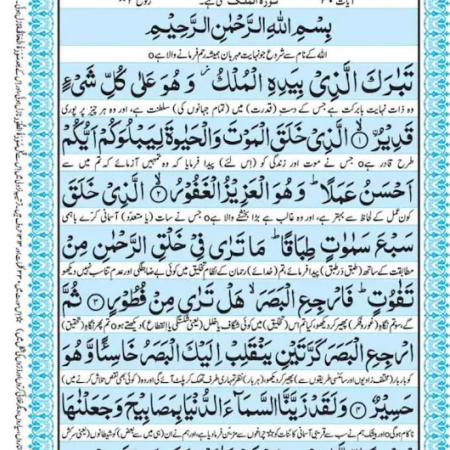 سُوْرَةُ الْمُلْك
بِسْمِ اللّٰهِ الرَّحْمٰنِ الرَّحِيْمِ
اللہ کے نام سے شروع جو نہایت مہربان ہمیشہ رحم فرمانے والا ہے o
تَبٰرَكَ الَّذِيْ بِيَدِهِ الْمُلْكُ ۫ وَ هُوَ عَلٰى كُلِّ شَيْءٍ
وہ ذات نہایت بابرکت ہے جس کے دستِ (قدرت) میں (تمام جہانوں کی) سلطنت ہے، اور وہ ہر چیز پر پوری
قَدِيْرُ ۙ﴿۱﴾ الَّذِيْ خَلَقَ الْمَوْتَ وَ الْحَيٰوةَ لِيَبْلُوَكُمْ اَيُّكُمْ
طرح قادر ہے o جس نے موت اور زندگی کو (اِس لئے) پیدا فرمایا کہ وہ تمہیں آزمائے کہ تم میں سے
اَحْسَنُ عَمَلًا ؕ وَ هُوَ الْعَزِيْزُ الْغَفُوْرُ ۙ﴿۲﴾ الَّذِيْ خَلَقَ
کون عمل کے لحاظ سے بہتر ہے، اور وہ غالب ہے بڑا بخشنے والا ہے o جس نے سات (یا متعدّد) آسمانی کرّے باہمی
سَبْعَ سَمٰوٰتٍ طِبَاقًا ؕ مَا تَرٰى فِيْ خَلْقِ الرَّحْمٰنِ مِنْ
مطابقت کے ساتھ (طبق دَر طبق) پیدا فرمائے، تم (خدائے) رحمان کے نظامِ تخلیق میں کوئی بے ضابطگی اور عدمِ تناسب نہیں دیکھو
تَفٰوُتٍ ؕ فَارْجِعِ الْبَصَرَ ۙ هَلْ تَرٰى مِنْ فُطُوْرٍ ﴿۳﴾ ثُمَّ
گے، سو تم نگاہِ (غور و فکر) پھیر کر دیکھو، کیا تم اس (تخلیق) میں کوئی شگاف یا خلل (یعنی شکستگی یا انقطاع) دیکھتے ہو o تم پھر نگاہِ (تحقیق)
ارْجِعِ الْبَصَرَ كَرَّتَيْنِ يَنْقَلِبْ اِلَيْكَ الْبَصَرُ خَاسِئًا وَّ هُوَ
کو بار بار (مختلف زاویوں اور سائنسی طریقوں سے) پھیر کر دیکھو، (ہر بار) نظر تمہاری طرف تھک کر پلٹ آئے گی اور وہ (کوئی بھی نقص تلاش کرنے میں)
حَسِيْرٌ ﴿۴﴾ وَ لَقَدْ زَيَّنَّا السَّمَآءَ الدُّنْيَا بِمَصَابِيْحَ وَ جَعَلْنٰهَا
ناکام ہو گی o اور بیشک ہم نے سب سے قریبی آسمانی کائنات کو چراغوں سے مزیّن فرما دیا ہے، اور ہم نے ان (ہی میں سے بعض) کو شیطانوں (یعنی سرکش